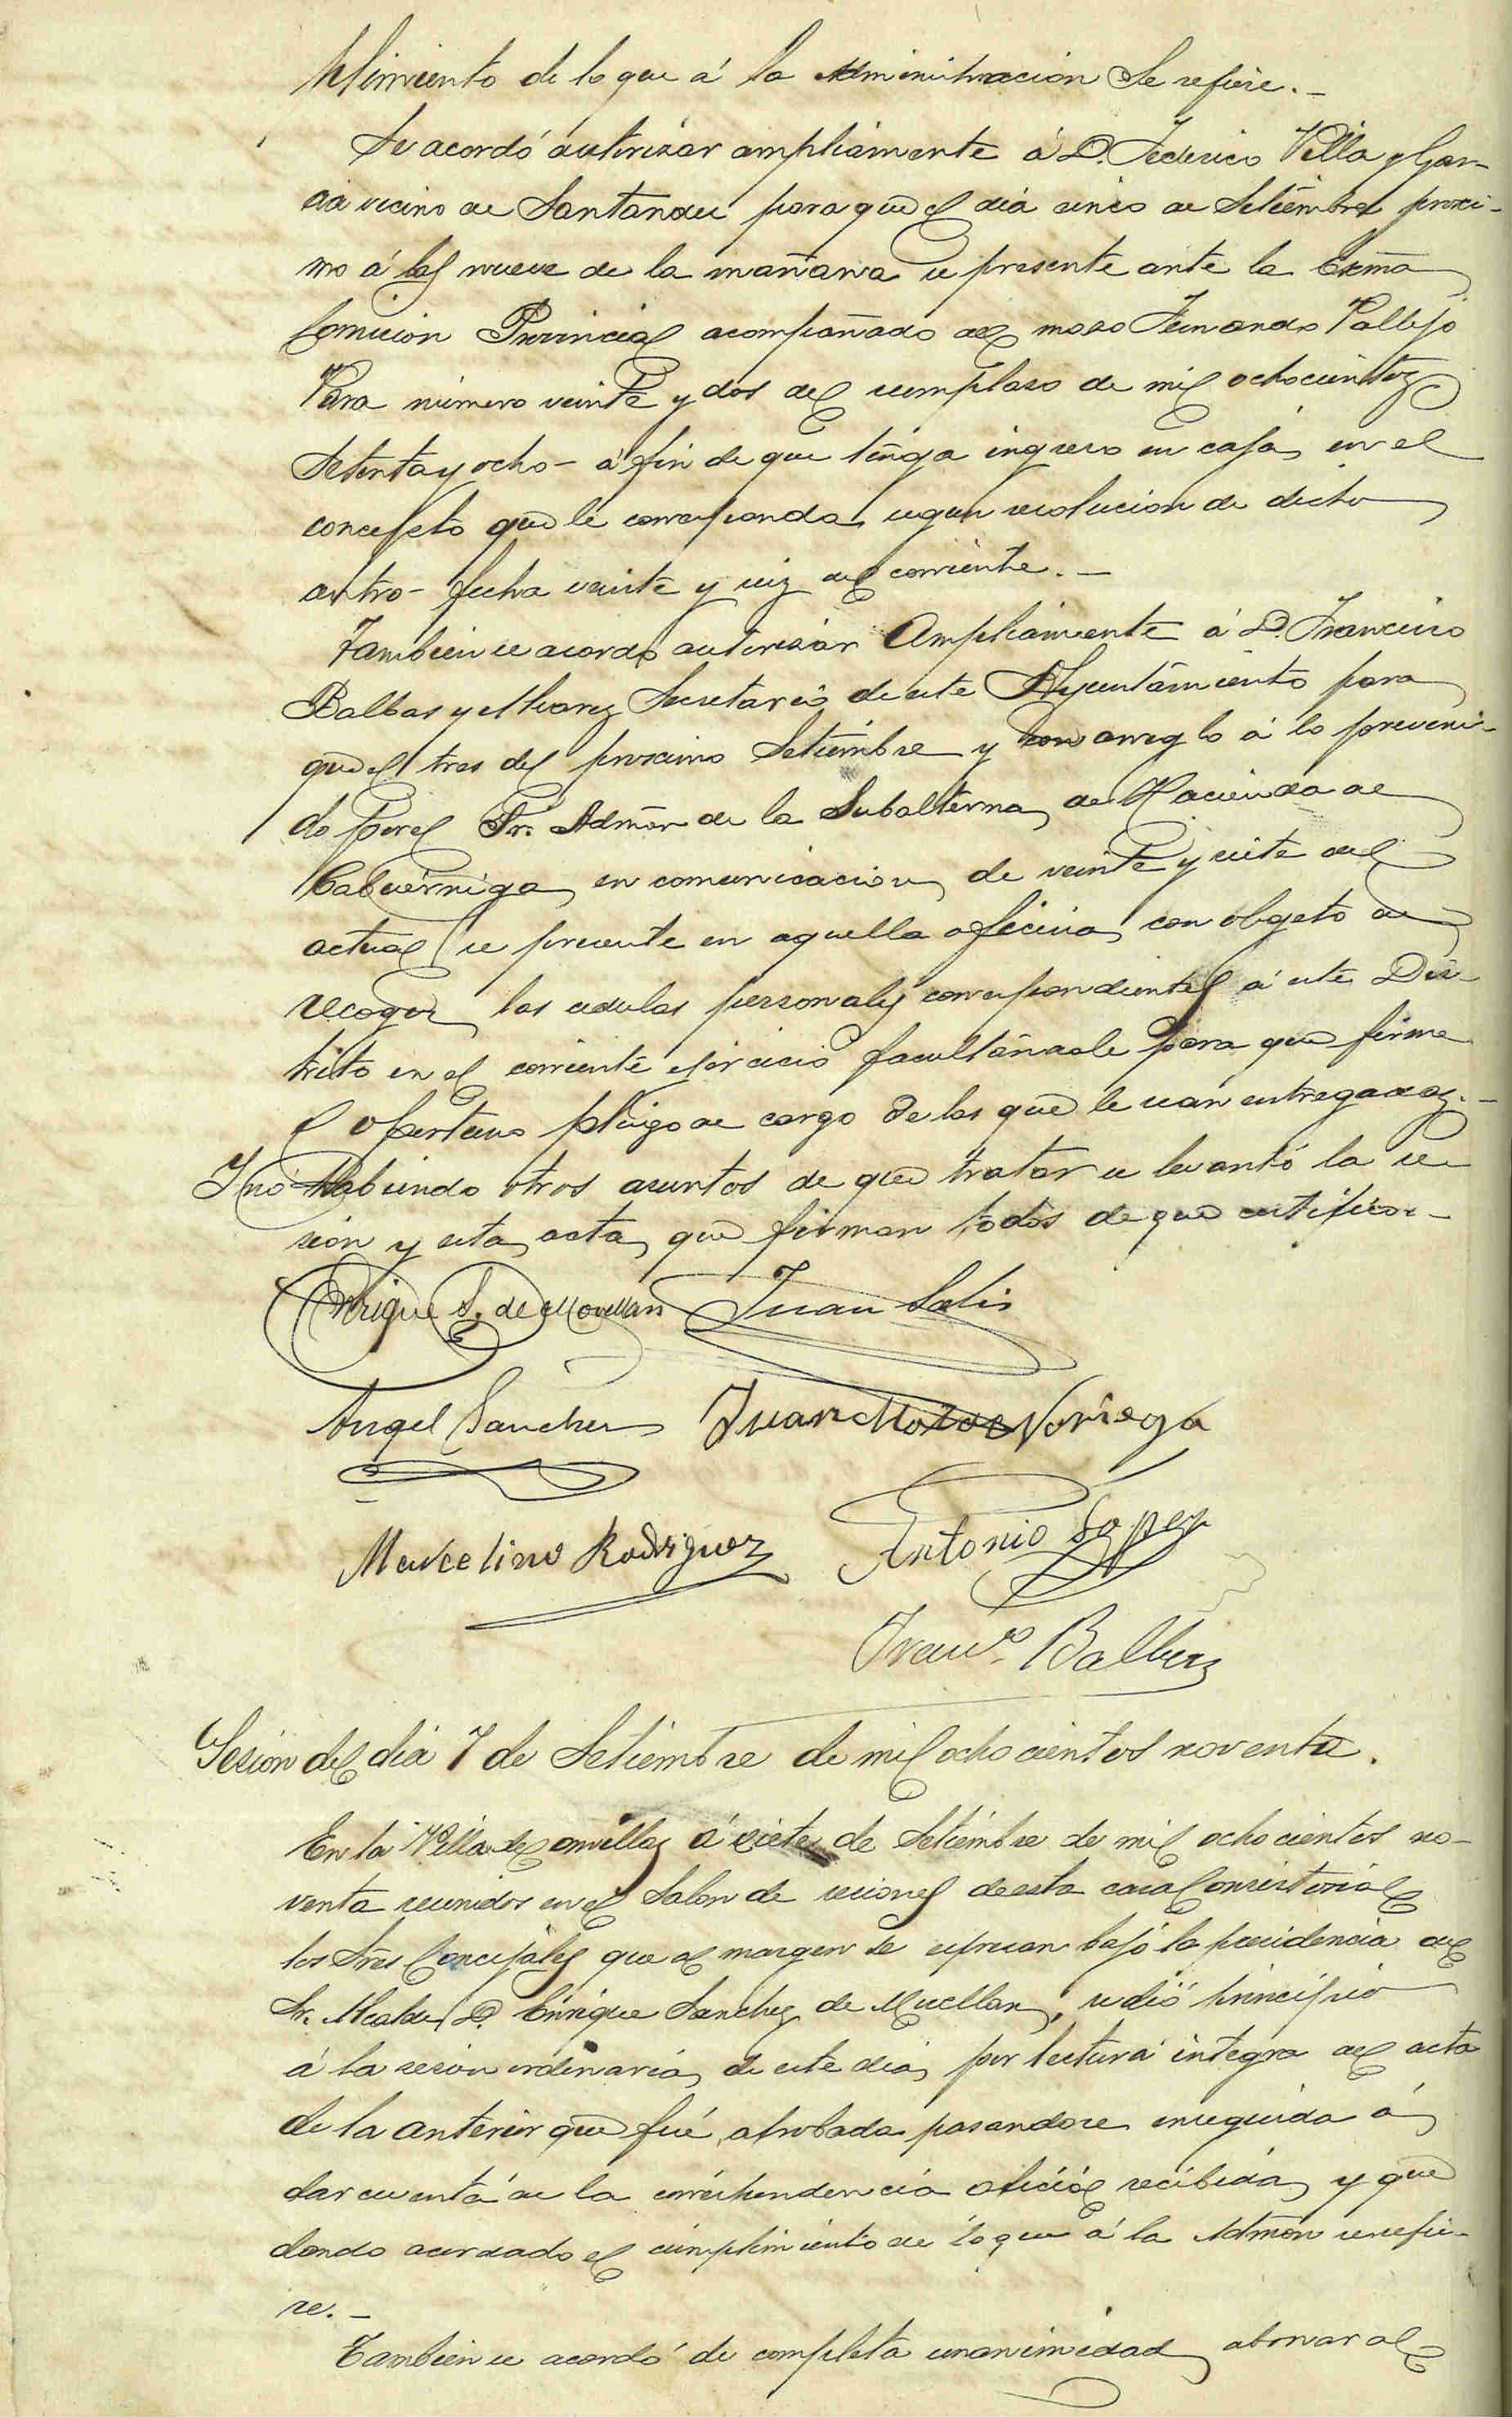 plimiento de lo que á la Administracion se refiere.-
Se acordó autorizar ampliamente á D. Federico Villa y Gar-
cia vecino de Santander para que el dia cinco de Setiembre proxi-
mo á las nueve de la mañana se presente ante la Excma
Comision Provincial acompañado del mozo Fernando Vallejo
Vara número veinte y dos del reemplazo de mil ochocientos
setenta y ocho - á fin de que tenga ingreso en caja en el
concepto que le corresponda segun resolucion de dicho
centro - fecha veinte y seis del corriente.-
Tambien se acordo autorizar Ampliamente á D. Francisco
Balbas y Alvarez Secretario de este Ayuntamiento para
que el tres del proximo Setiembre y con arreglo á lo preveni-
do por el Sr. Admor de la Subalterna de Hacienda de
Cabuérniga en comunicacion de veinte y siete del
actual se presente en aquella oficina con objeto de
recoger las cedulas personales correspondientes á este Dis-
trito en el corriente ejercicio facultandole para que firme
el oportuno pliego de cargo de las que le sean entregadas.-
Y no habiendo otros asuntos de que tratar se levantó la se-
sion y esta acta que firman todos de que certifico.-
Enrique S. de Movellan Juan Solis
Angel Sanchez Juan Noriega
Marcelino Rodriguez Antonio Lopez
Franco. Balbas
Sesión del dia 7 de Setiembre de mil ochocientos noventa.
En la Villa de Comillas á siete de Setiembre de mil ochocientos no-
venta reunidos en el Salon de sesiones de esta casa Consistorial
los Sres Concejales que al margen se espresan bajo la presidencia del
Sr. Alcalde D. Enrique Sanchez de Movellan, se dió principio
á la sesion ordinaria de este dia por lectura integra del acta
de la anterior que fué aprobada pasandose enseguida á
dar cuenta de la correspondencia oficial recibida y que
dando acordado el cumplimiento de lo que á la Admon se refie-
re.-
Tambien se acordó de completa unanimidad abonar al